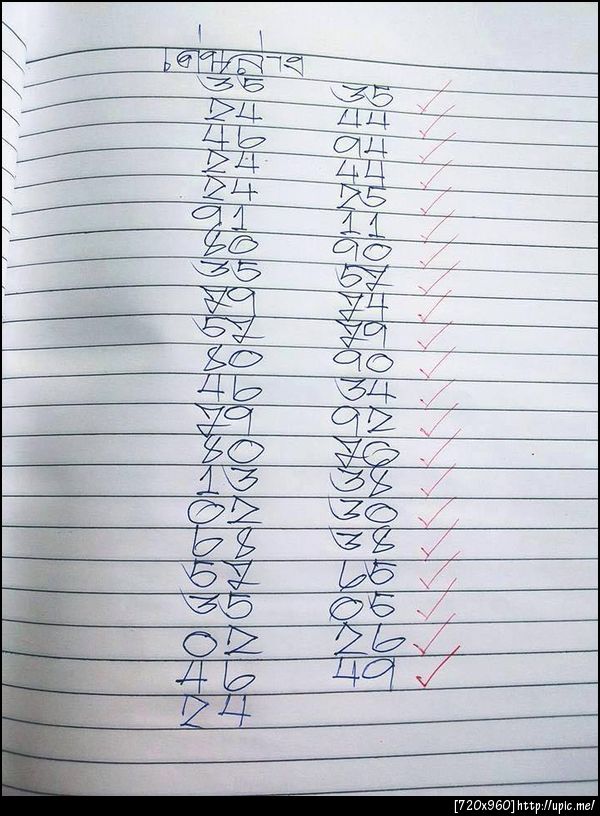 35 35
24 44
46 94
24 44
24 25
91 11
80 90
35 57
79 74
57 79
80 90
46 34
79 92
80 76
13 38
02 30
68 38
57 65
35 05
02 26
46 49
24
[720x960]http://upic.me/